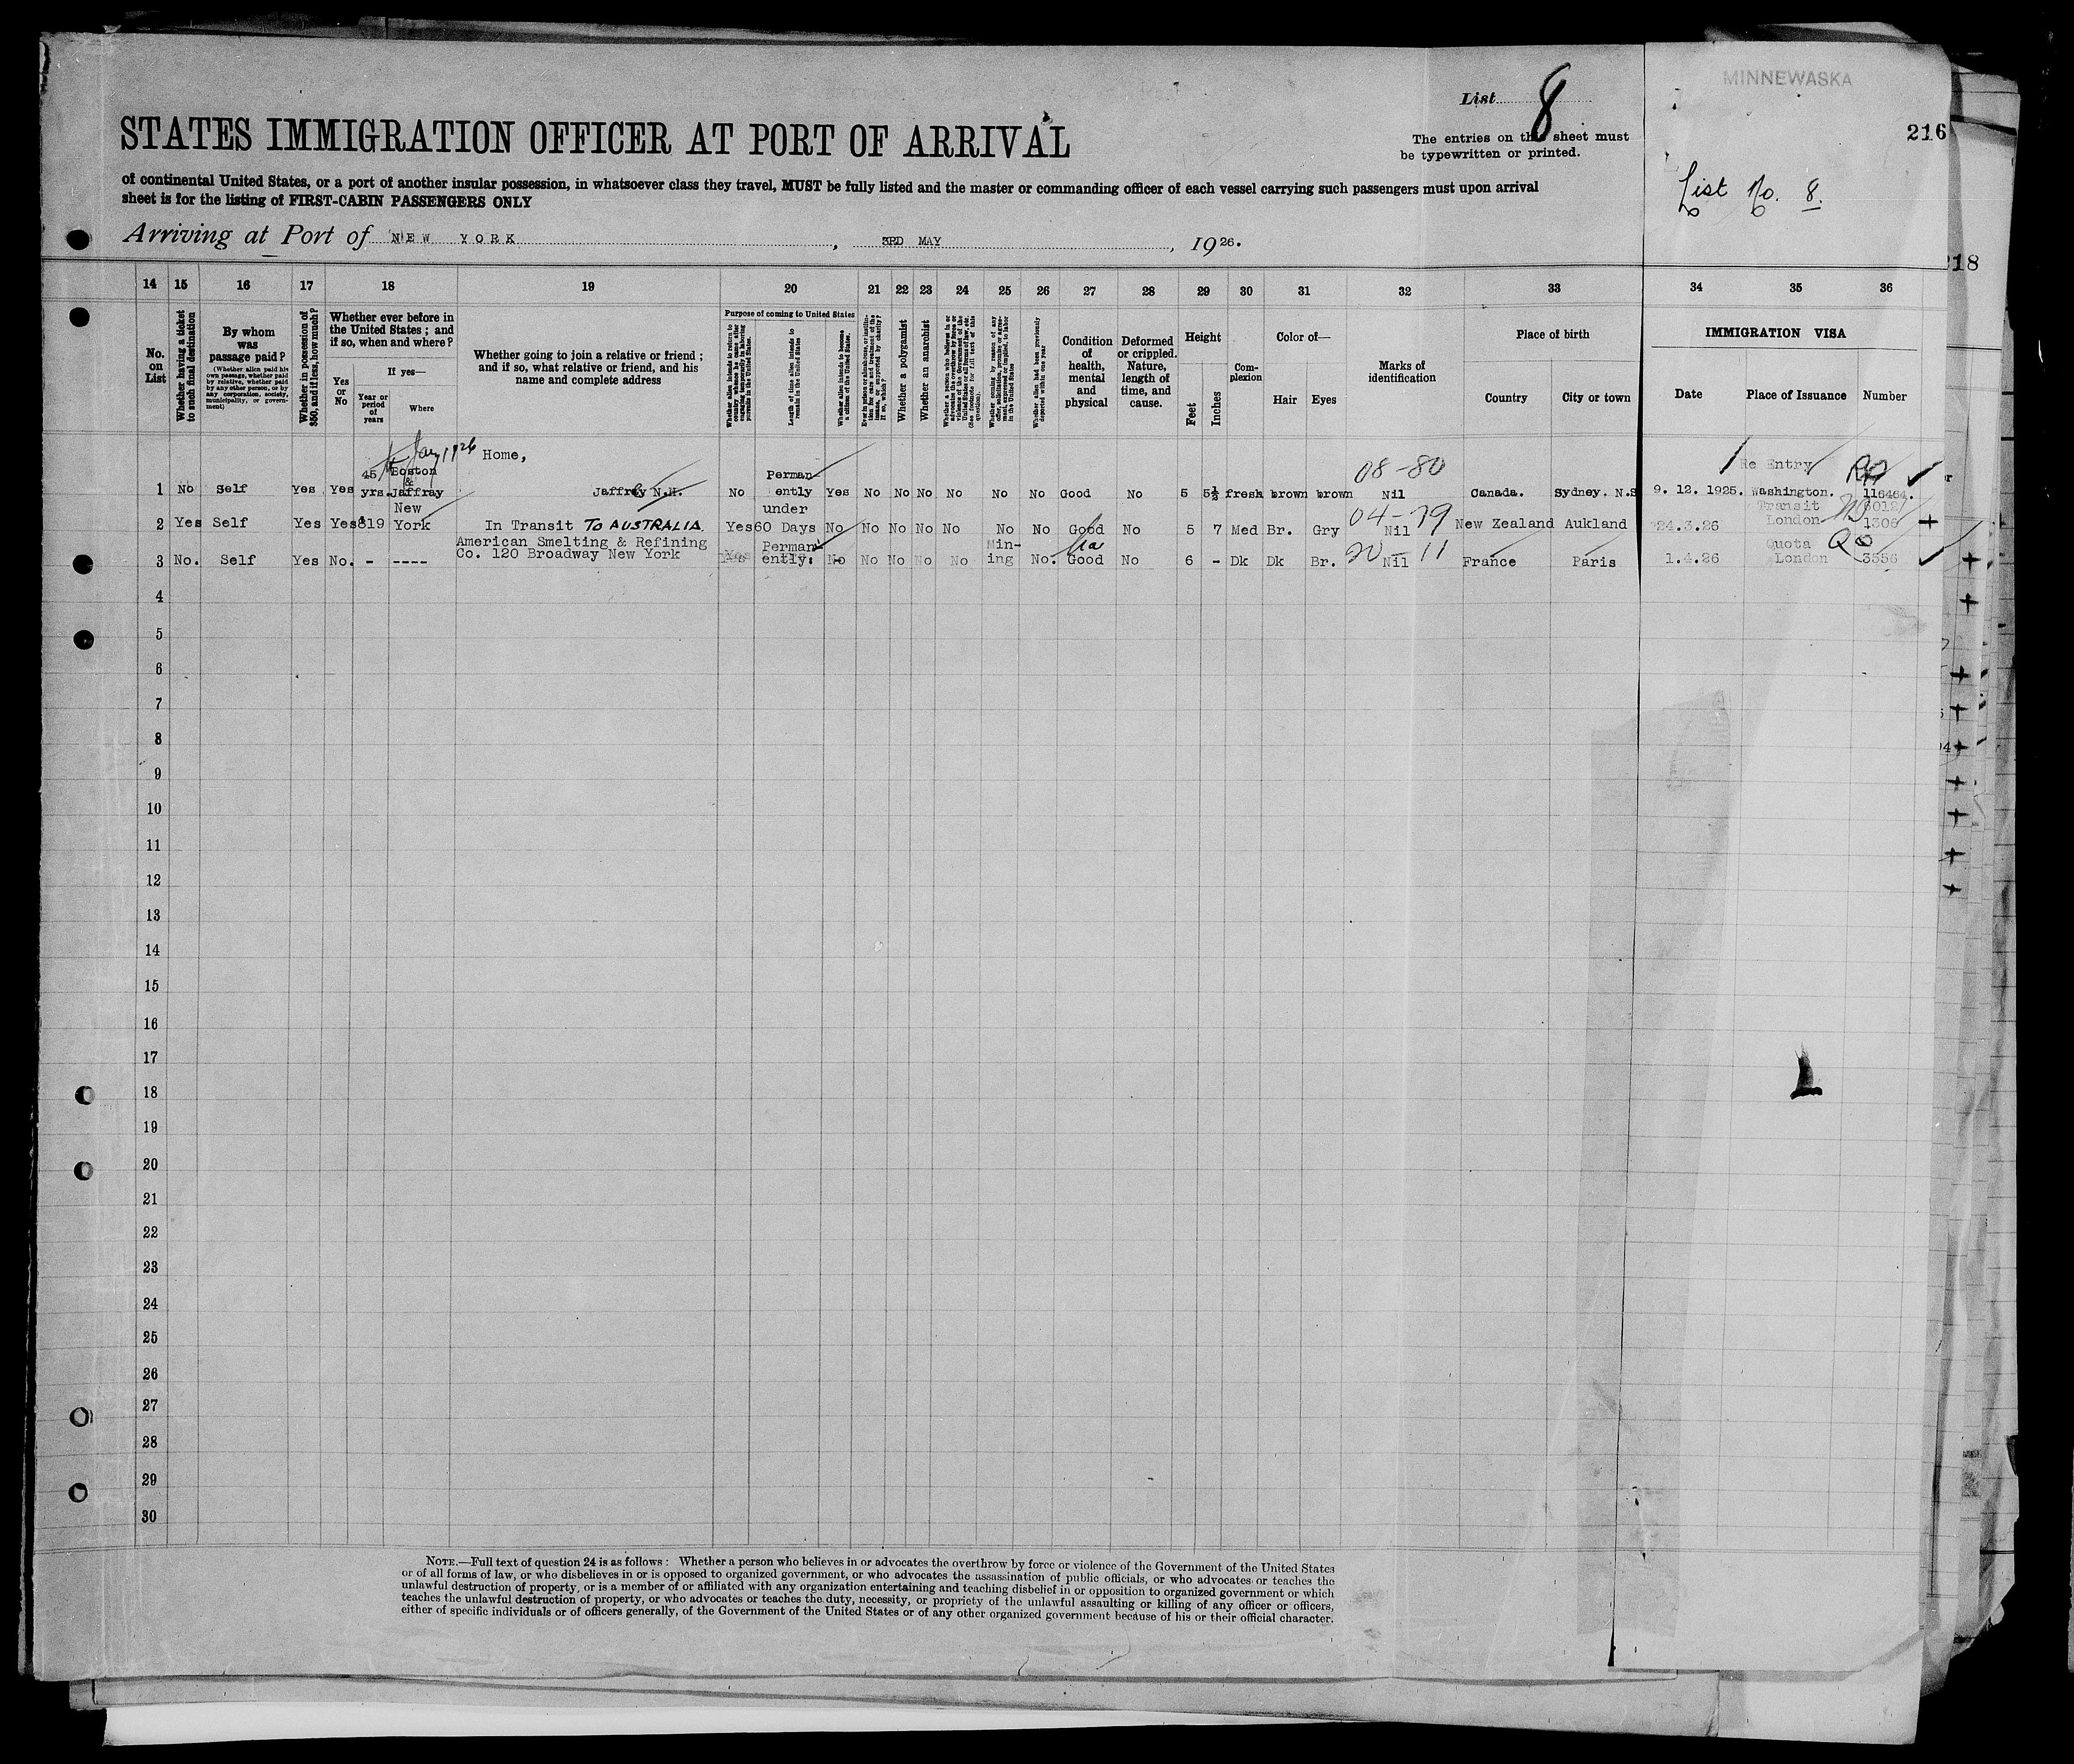 MINNEWASKA
List 8
216
STATES IMMIGRATION OFFICER AT PORT OF ARRIVAL
The entries on this sheet must
be typewritten or printed.
List No. 8.
of continental United States, or a port of another insular possession, in whatsoever class they travel, MUST be fully listed and the master or commanding officer of each vessel carrying such passengers must upon arrival
sheet is for the listing of FIRST-CABIN PASSENGERS ONLY
Arriving at Port of NEW YORK, 3RD MAY, 1926.
218
14 15 16 17 18 19 20 21 22 23 24 25 26 27 28 29 30 31 32 33 34 35 36
No. on List
Whether having a ticket to such final destination
By whom was passage paid?
(Whether alien paid his own passage, whether paid by relative, whether paid by any other person, or by any corporation, society, municipality, or government)
Whether in possession of $50, and if less, how much?
Whether ever before in the United States; and if so, when and where?
Yes or No
If yes—
Year or period of years
Where
Whether going to join a relative or friend; and if so, what relative or friend, and his name and complete address
Purpose of coming to United States
Length of time alien intends to remain in the United States
Whether alien intends to become a citizen of the United States.
Whether a polygamist
Whether an anarchist
Whether alien had been previously deported within one year
Condition of health, mental and physical
Deformed or crippled. Nature, length of time, and cause.
Height
Feet
Inches
Complexion
Color of—
Hair
Eyes
Marks of identification
Place of birth
Country
City or town
IMMIGRATION VISA
Date
Place of Issuance
Number
Jan 1926 Home,
08-80
1 No Self Yes Yes 45 yrs. Boston & Jaffray Jaffrey N.H. No Permanently Yes No No No No No No Good No 5 5½ fresh brown brown Nil Canada. Sydney. N.S 9. 12. 1925. Re Entry Washington. 116464.
04-79
2 Yes Self Yes Yes 819 New York In Transit TO AUSTRALIA. Yes under 60 Days No No No No No No No Good No 5 7 Med Br. Gry Nil New Zealand Aukland 24.3.26 Transit London 6012/ 1306 +
20-11
3 No. Self Yes No. - ---- American Smelting & Refining Co. 120 Broadway New York Yes Permanently. No No No No No Mining No. Good No 6 - Dk Dk Br. Nil France Paris 1.4.26 Quota London 3556
4
5
6
7
8
9
10
11
12
13
14
15
16
17
18
19
20
21
22
23
24
25
26
27
28
29
30
NOTE.—Full text of question 24 is as follows: Whether a person who believes in or advocates the overthrow by force or violence of the Government of the United States
or of all forms of law, or who disbelieves in or is opposed to organized government, or who advocates the assassination of public officials, or who advocates or teaches the
unlawful destruction of property, or is a member of or affiliated with any organization entertaining and teaching disbelief in or opposition to organized government or which
teaches the unlawful destruction of property, or who advocates or teaches the duty, necessity, or propriety of the unlawful assaulting or killing of any officer or officers,
either of specific individuals or of officers generally, of the Government of the United States or of any other organized government because of his or their official character.